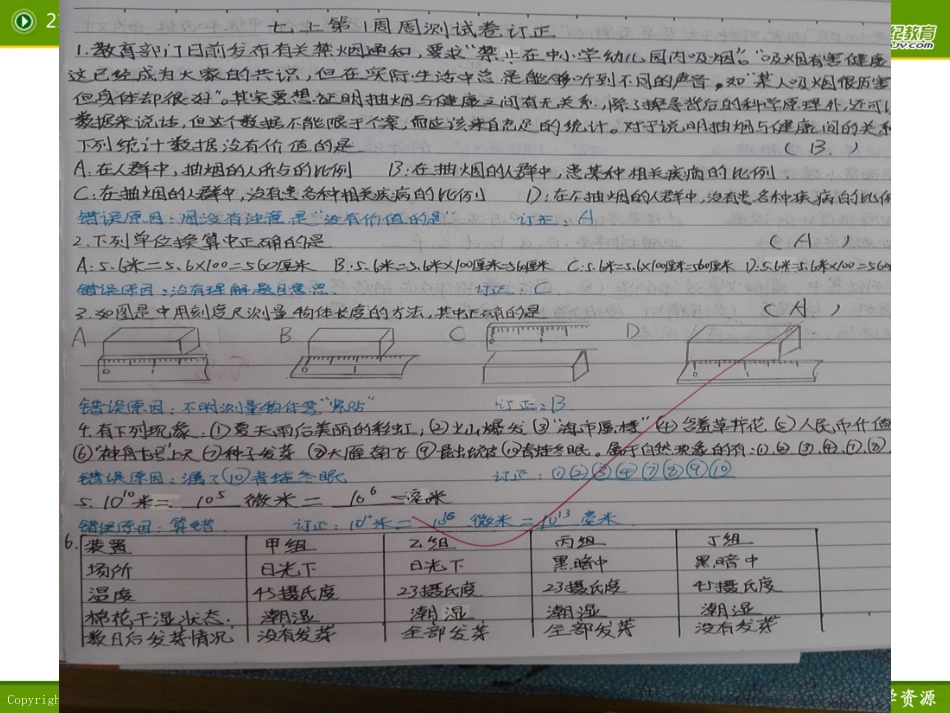 七上第1周周测试卷订正
1.教育部门日前发布有关禁烟通知,要求"禁止在中小学幼儿园内吸烟"。"吸烟有害健康
这已经成为大家的共识,但在实际生活中总是能够听到不同的声音。如"某人吸烟很厉害
但身体却很好"。其实要想证明抽烟与健康之间有无关系,除了探寻背后的科学原理外,还可以
数据来说话,但这个数据不能限于个案,而应该来自充足的统计。对于说明抽烟与健康间的关系
下列统计数据没有价值的是 ( B. )
A.在人群中,抽烟的人所占的比例 B.在抽烟的人群中,患某种相关疾病的比例
C.在抽烟的人群中,没有患各种相关疾病的比例 D.在不抽烟的人群中,没有患各种疾病的比例
错误原因:因没有注意是"没有价值的是" 订正:A
2.下列单位换算中正确的是 ( A )
A.5.6米=5.6×100=560厘米 B.5.6米=5.6米×100厘米=560厘米 C.5.6米=5.6×100厘米=560厘米 D.5.6米=5.6米×100=560
错误原因:没有理解题目意思 订正:C
3.如图是中用刻度尺测量物体长度的方法,其中正确的是 ( A )
A B C D
错误原因:不明测量物体要"紧贴" 订正:B
4.有下列现象:①夏天雨后美丽的彩虹,②火山爆发③"海市蜃楼"④含羞草开花⑤人民币什值
⑥"神舟七号"上天⑦种子发芽⑧大雁南飞⑨昆虫蜕皮⑩青蛙冬眠。属于自然现象的有:①.②.③.④.⑦.⑧.
错误原因:漏了⑩青蛙冬眠 订正:①②③④⑦⑧⑨⑩
5. 10¹⁰米= 10⁵ 微米= 10⁶ 毫米
错误原因:算错 订正:10¹⁰米= 10¹⁶ 微米= 10¹³ 毫米
6. 装置 甲组 乙组 丙组 丁组
场所 日光下 日光下 黑暗中 黑暗中
温度 45摄氏度 23摄氏度 23摄氏度 45摄氏度
棉花干湿状态. 潮湿 潮湿 潮湿 潮湿
数日后发芽情况 没有发芽 全部发芽 全部发芽 没有发芽
Copyrigh
学资源